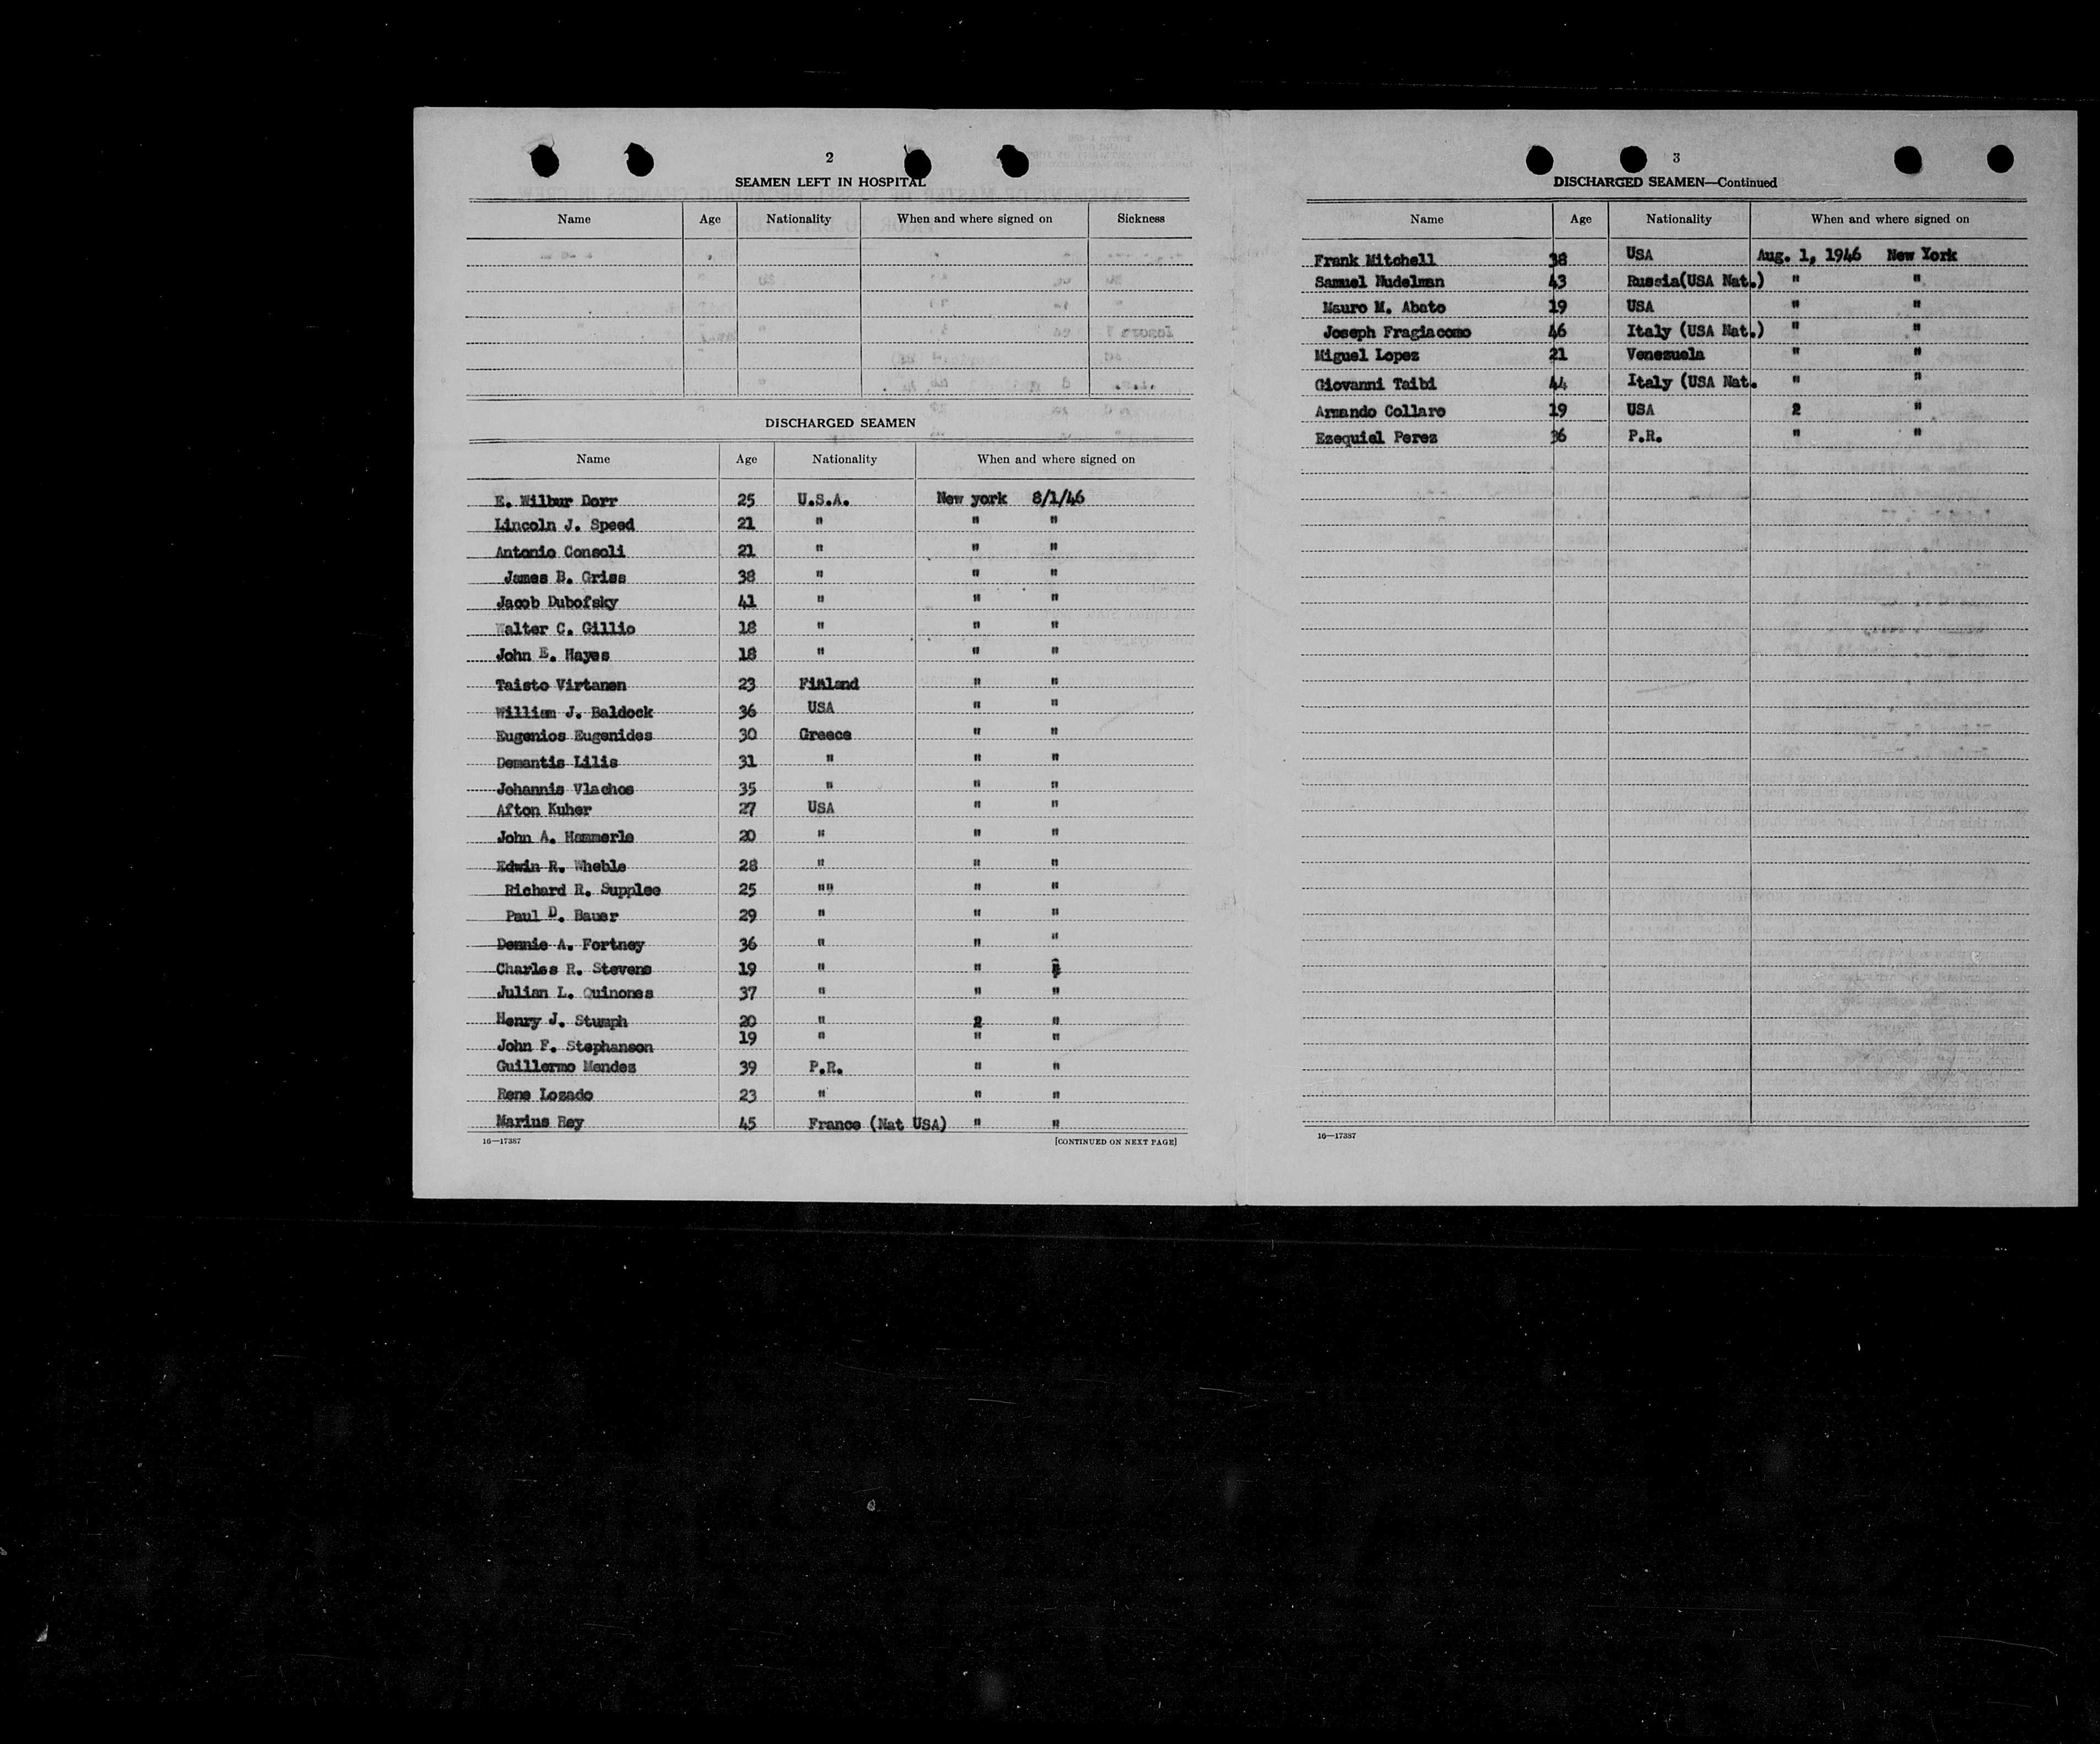 2
SEAMEN LEFT IN HOSPITAL
Name Age Nationality When and where signed on Sickness
DISCHARGED SEAMEN
Name Age Nationality When and where signed on
E. Wilbur Dorr 25 U.S.A. New york 8/1/46
Lincoln J. Speed 21 " " "
Antonio Consoli 21 " " "
James B. Griss 38 " " "
Jacob Dubofsky 41 " " "
Walter C. Gillio 18 " " "
John E. Hayes 18 " " "
Taisto Virtanen 23 Finland " "
William J. Baldock 36 USA " "
Eugenios Eugenides 30 Greece " "
Demantis Lilis 31 " " "
Johannis Vlachos 35 " " "
Afton Kuher 27 USA " "
John A. Hammerle 20 " " "
Edwin R. Wheble 28 " " "
Richard R. Supplee 25 "" " "
Paul D. Bauer 29 " " "
Dennie A. Fortney 36 " " "
Charles R. Stevens 19 " "
Julian L. Quinones 37 " " "
Henry J. Stumph 20 " 2 "
John F. Stephanson 19 " " "
Guillermo Mendez 39 P.R. " "
Rene Lozado 23 " " "
Marius Rey 45 France (Nat USA) " "
16—17387 [CONTINUED ON NEXT PAGE]
3
DISCHARGED SEAMEN—Continued
Name Age Nationality When and where signed on
Frank Mitchell 38 USA Aug. 1, 1946 New York
Samuel Nudelman 43 Russia(USA Nat.) " "
Mauro M. Abato 19 USA " "
Joseph Fragiacomo 46 Italy (USA Nat.) " "
Miguel Lopez 21 Venezuela " "
Giovanni Taibi 44 Italy (USA Nat. " "
Armando Collaro 19 USA 2 "
Ezequial Perez 36 P.R. " "
16—17387